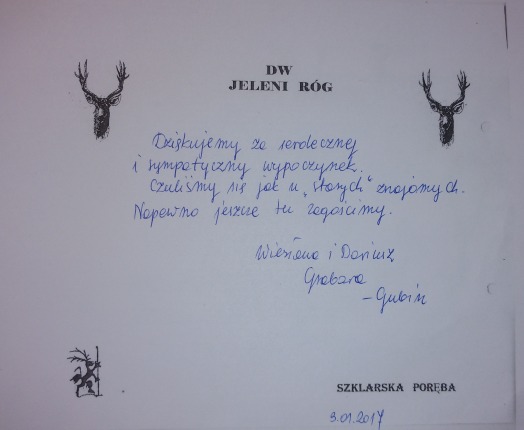 DW
JELENI RÓG
Dziękujemy za serdecznej
i sympatyczny wypoczynek.
Czuliśmy się jak u „starych" znajomych.
Napewno jeszcze tu zagościmy.
Wiesława i Dariusz
Grabara
– Gubin
SZKLARSKA PORĘBA
3.01.2017